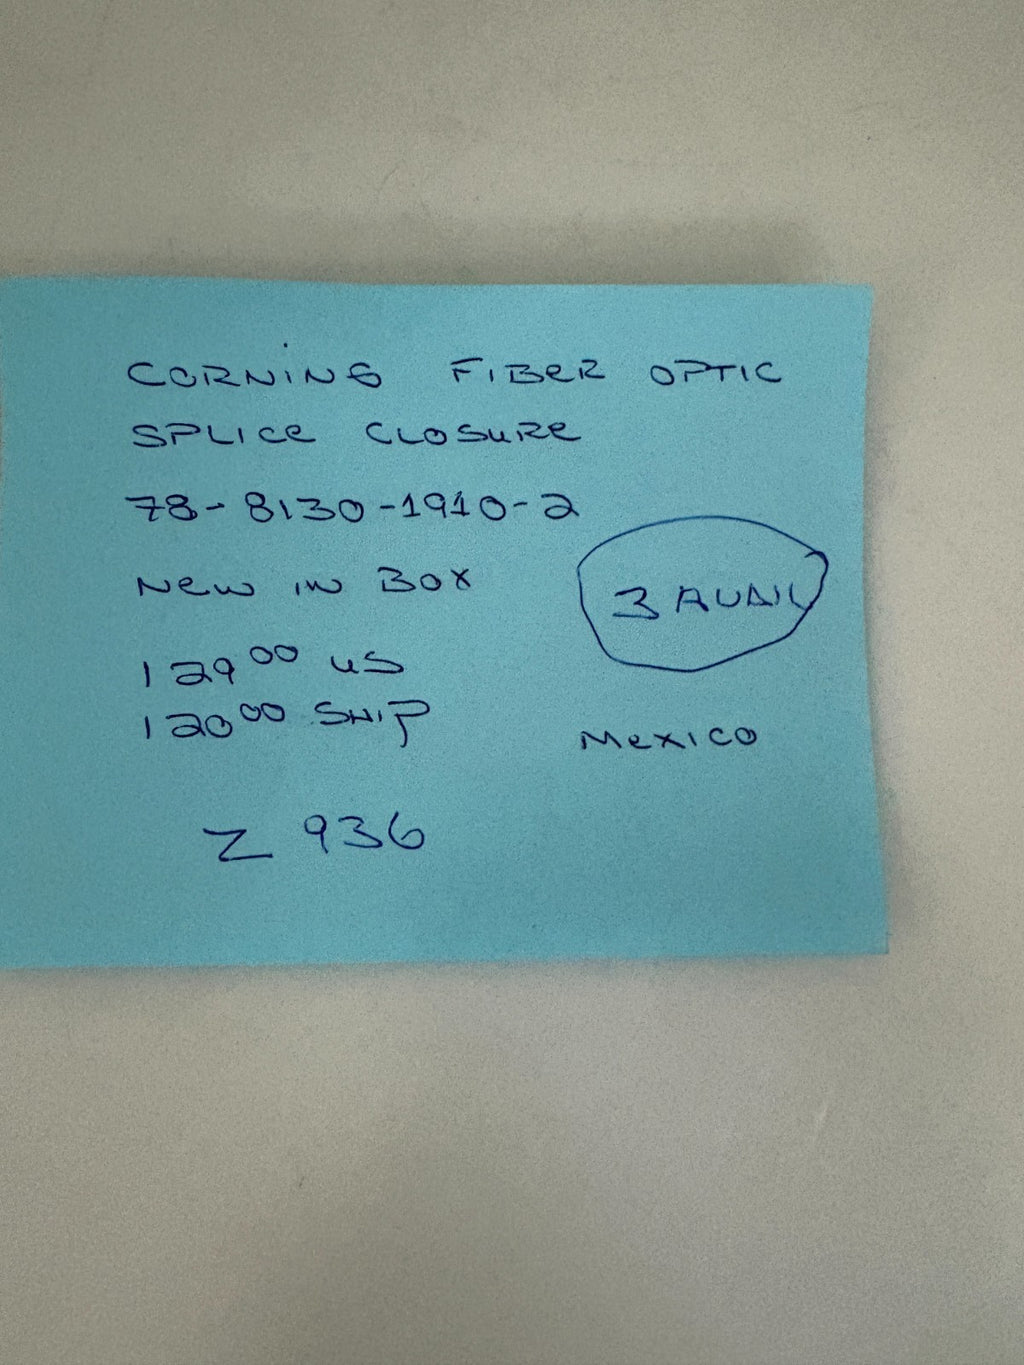 CORNING FIBER OPTIC
SPLICE CLOSURE
78-8130-1910-2
NEW IN BOX
3 AVAIL
129⁰⁰ US
120⁰⁰ SHIP
MEXICO
Z 936